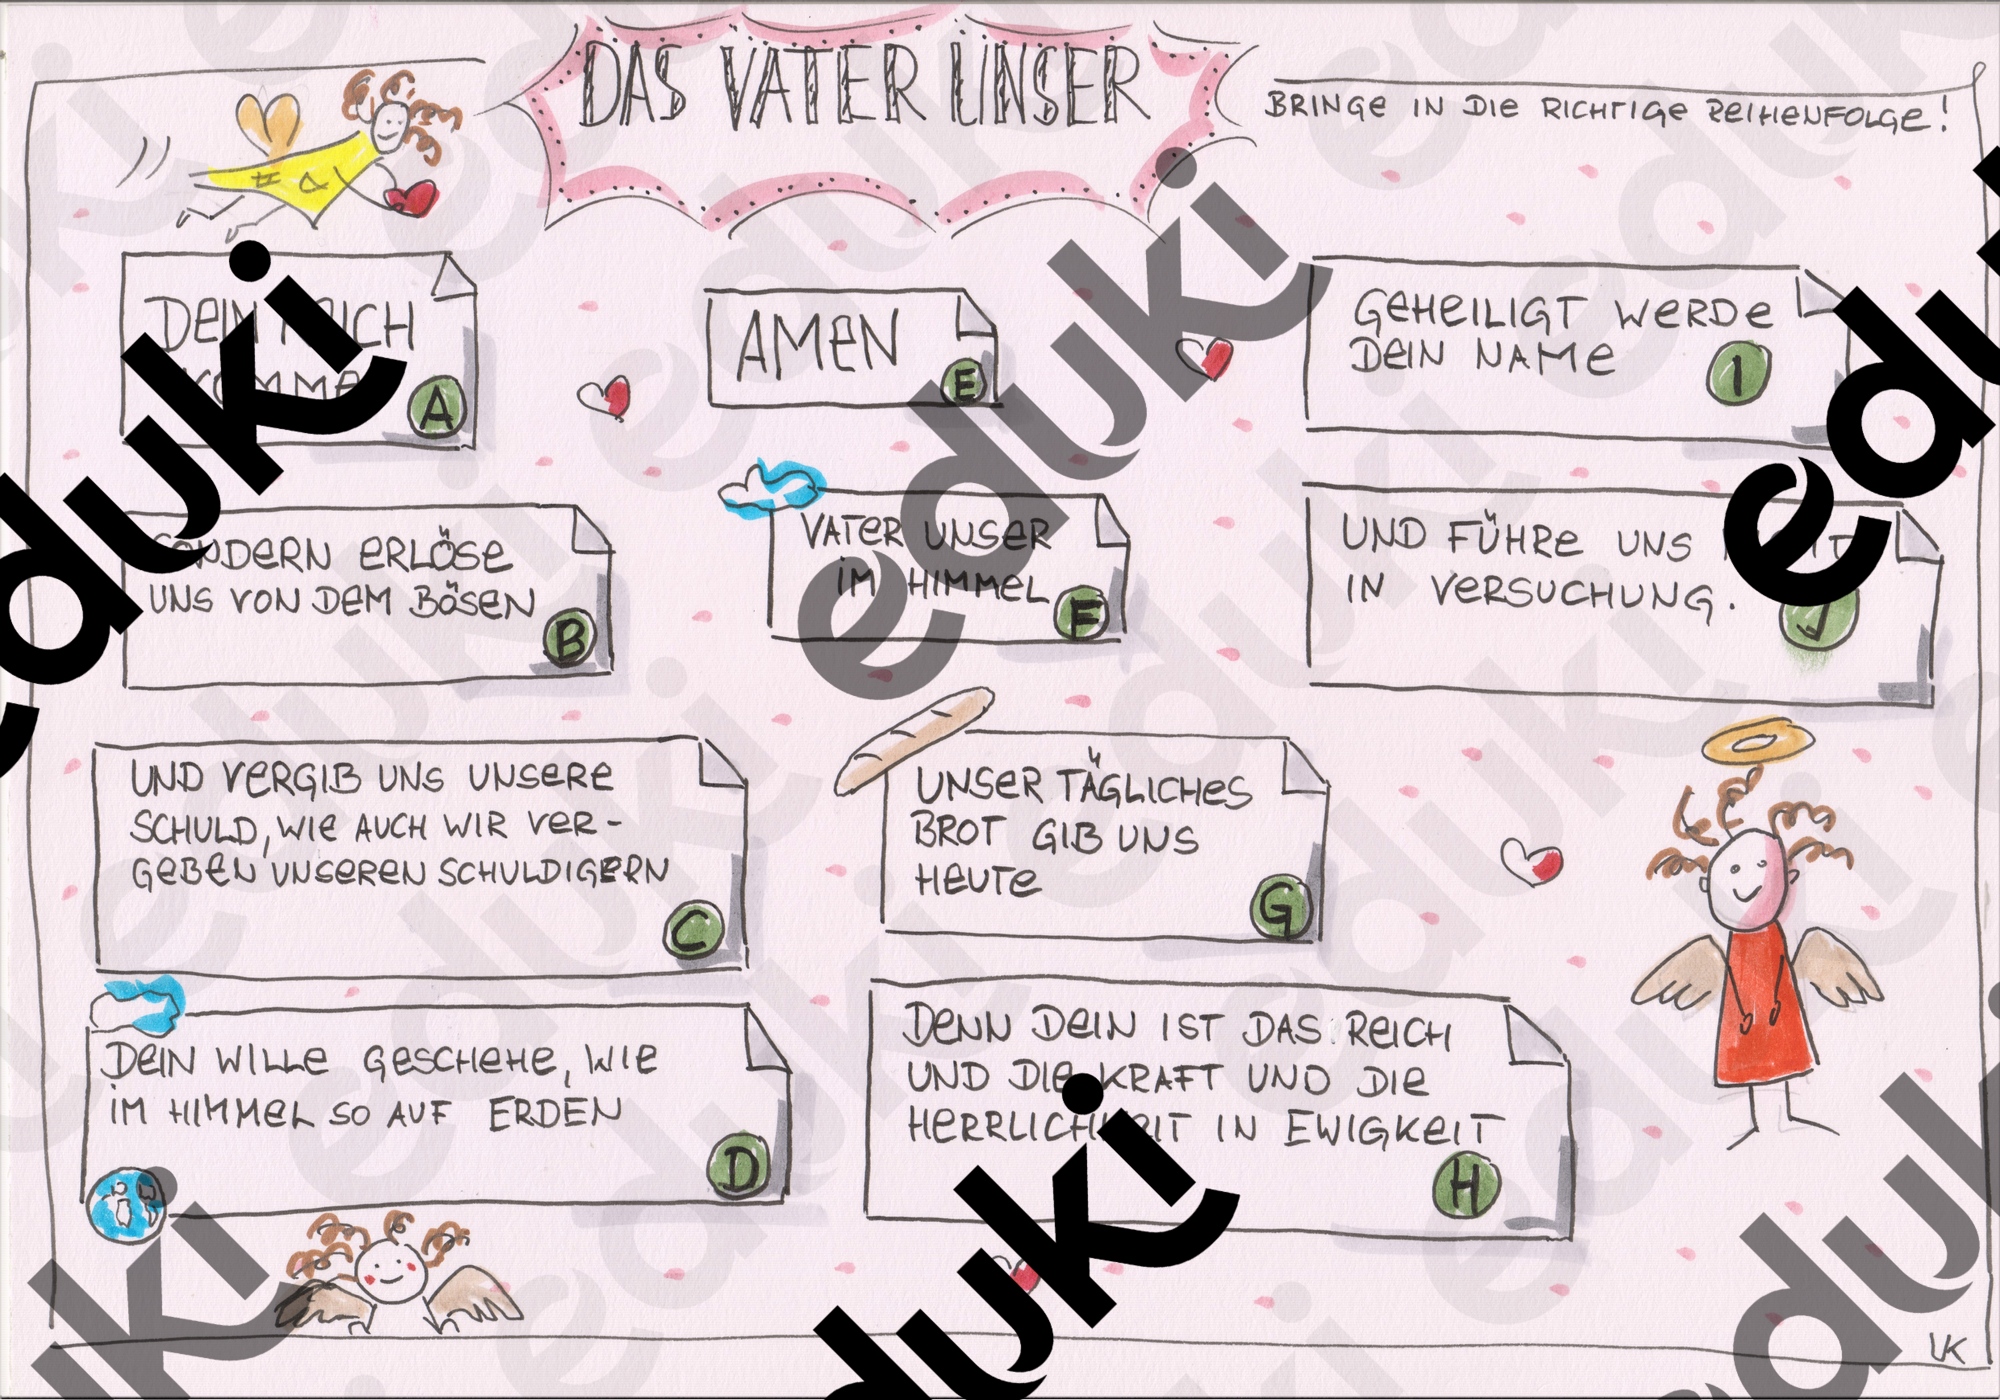 DAS VATER UNSER
BRINGE IN DIE RICHTIGE REIHENFOLGE!
DEIN REICH
KOMME
A
AMEN
E
GEHEILIGT WERDE
DEIN NAME
I
SONDERN ERLÖSE
UNS VON DEM BÖSEN
B
VATER UNSER
IM HIMMEL
F
UND FÜHRE UNS
IN VERSUCHUNG.
J
UND VERGIB UNS UNSERE
SCHULD, WIE AUCH WIR VER-
GEBEN UNSEREN SCHULDIGERN
C
UNSER TÄGLICHES
BROT GIB UNS
HEUTE
G
DEIN WILLE GESCHEHE, WIE
IM HIMMEL SO AUF ERDEN
D
DENN DEIN IST DAS REICH
UND DIE KRAFT UND DIE
HERRLICHKEIT IN EWIGKEIT
H
VK
eduki
eduki
eduki
eduki
eduki